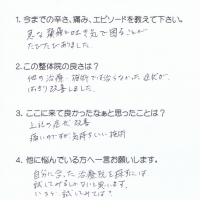 1. 今までの辛さ、痛み、エピソードを教えて下さい。
急な頭痛と吐き気で困ることが
たびたびありました。
2. この整体院の良さは?
他の治療・施術では治らなかった症状が、
はっきり改善しました。
3. ここに来て良かったなぁと思ったことは?
上記の症状改善
痛いのですが気持ちいい施術
4. 他に悩んでいる方へ一言お願いします。
自分に合った治療院を探すには
試してみるしかないと思います。
いちど試してみては?